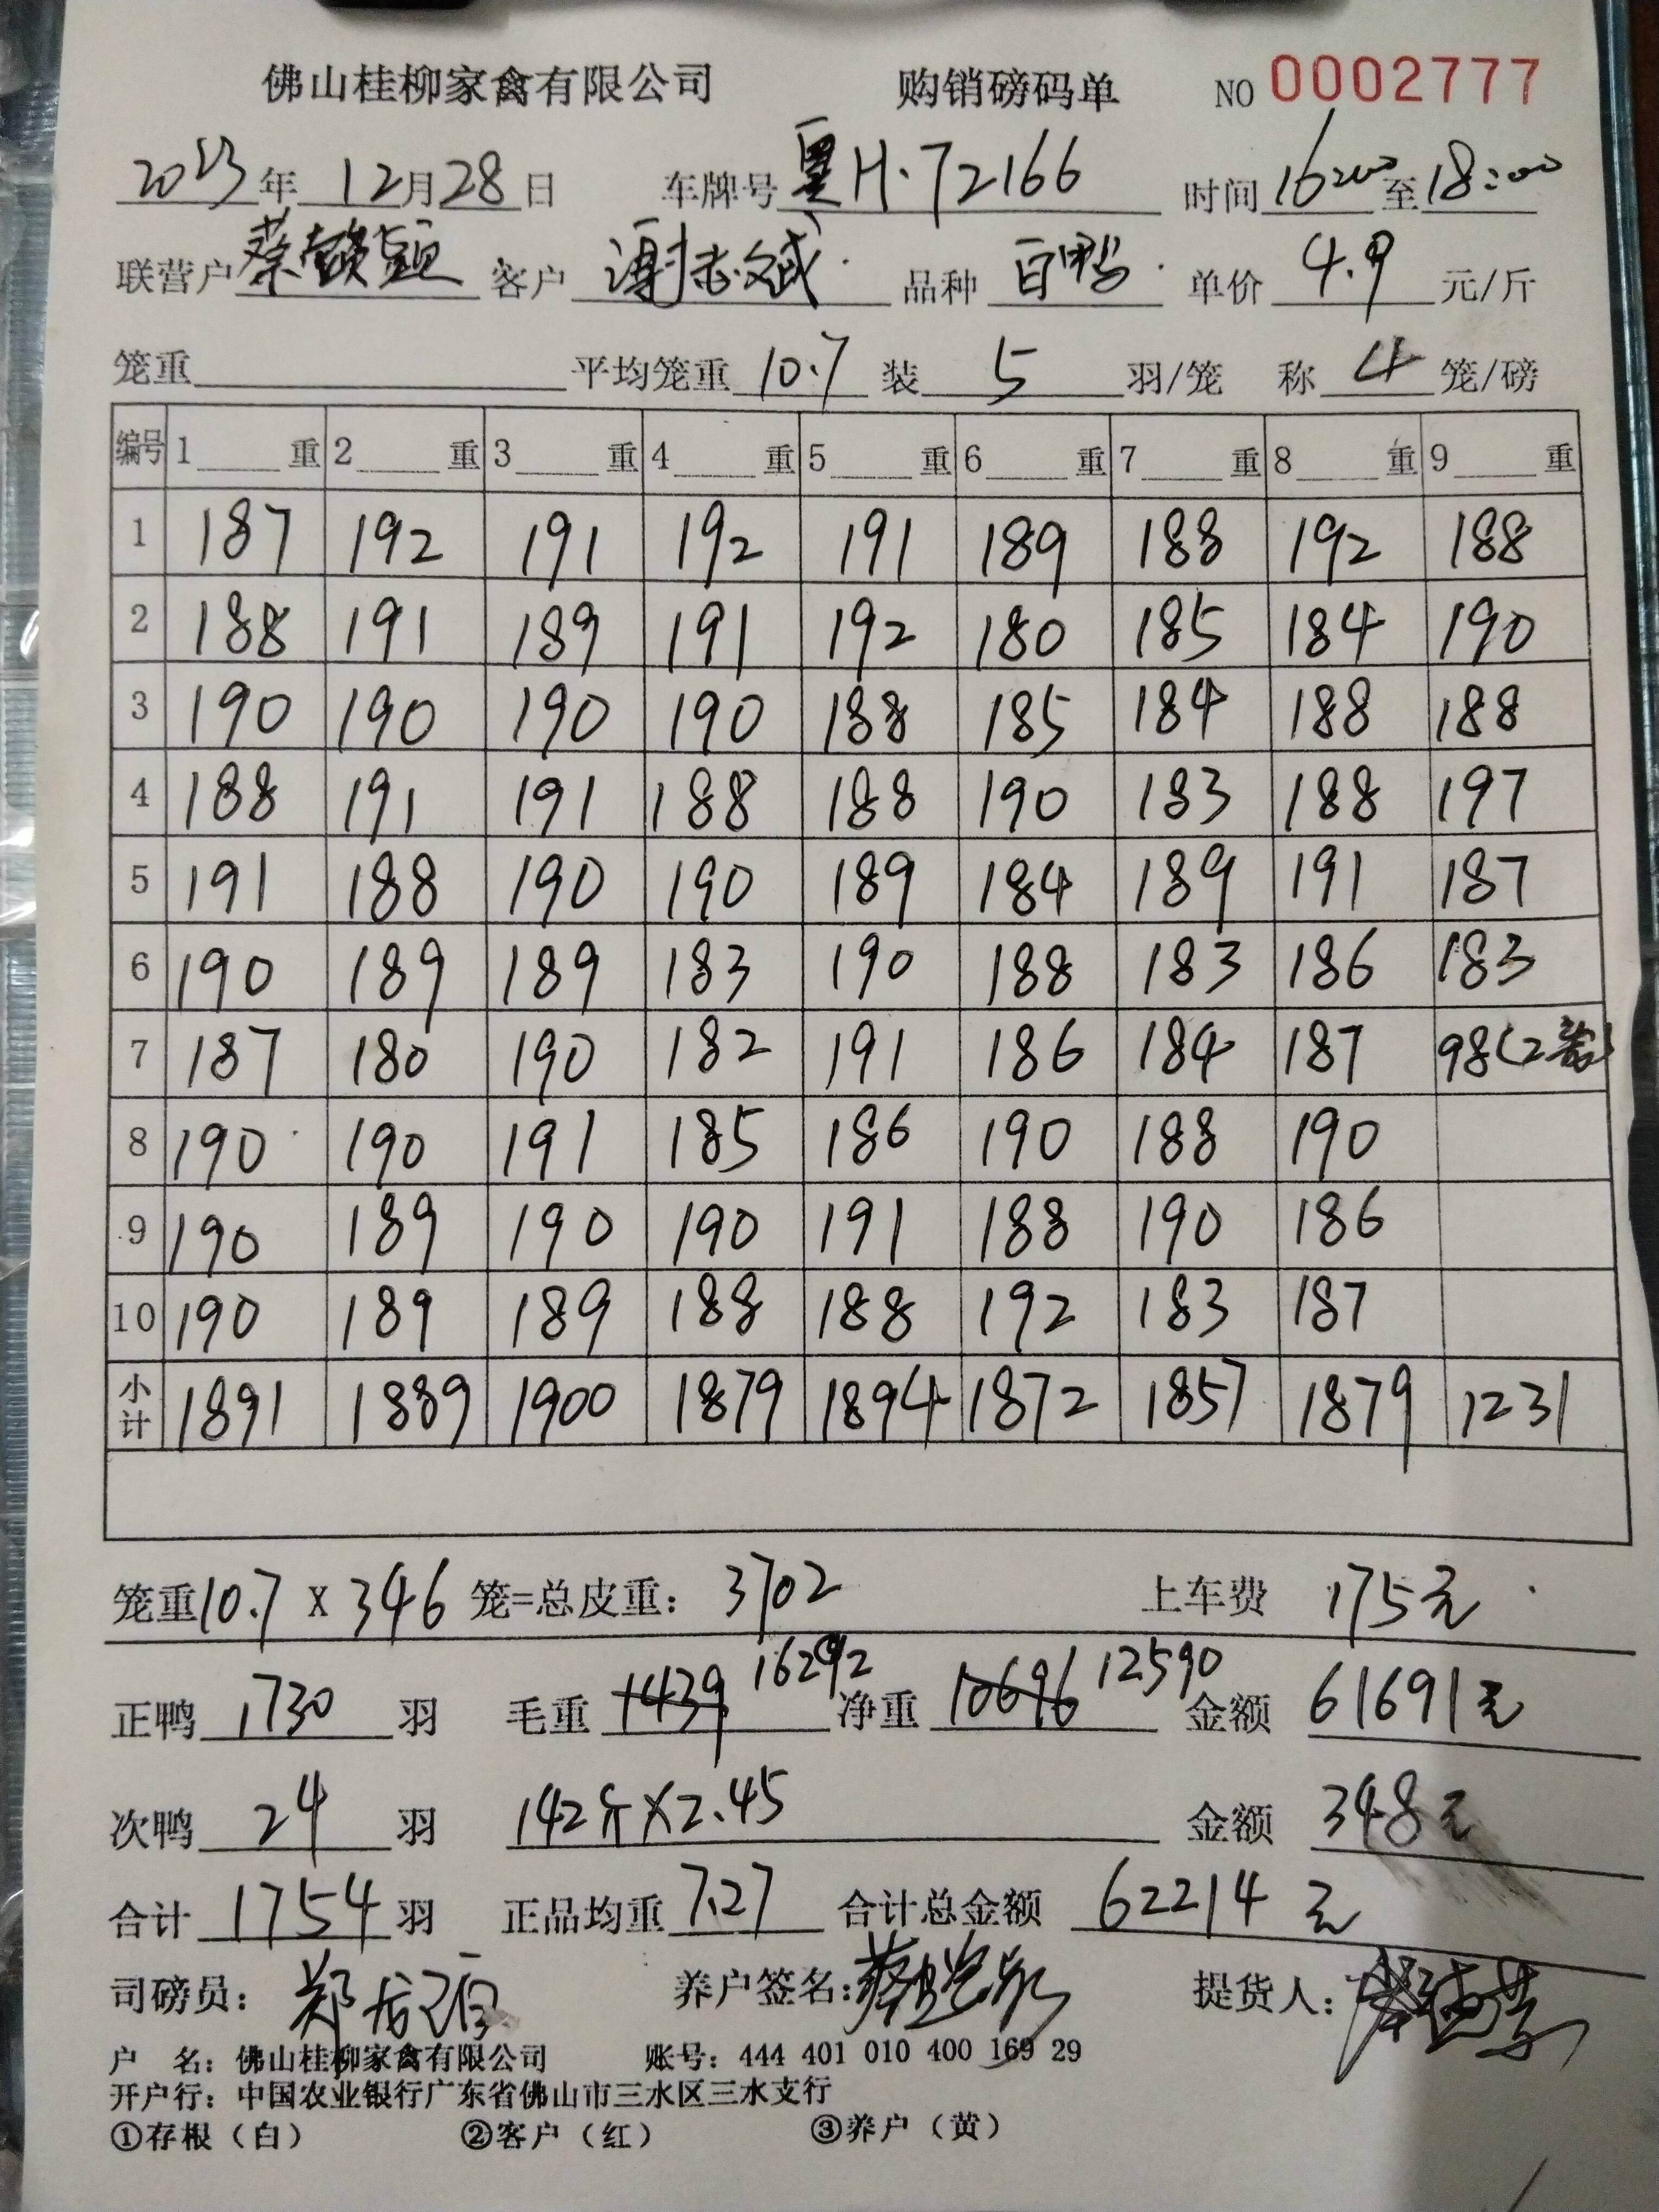 佛山桂柳家禽有限公司 购销磅码单 NO 0002777
2023年 12月28日 车牌号 粤H·72166 时间 16:00 至 18:00
联营户 蔡 客户 谢志斌 品种 白鸭 单价 4.9 元/斤
笼重 平均笼重 10.7 装 5 羽/笼 称 4 笼/磅
编号 1 重 2 重 3 重 4 重 5 重 6 重 7 重 8 重 9 重
1 187 192 191 192 191 189 188 192 188
2 188 191 189 191 192 180 185 184 190
3 190 190 190 190 188 185 184 188 188
4 188 191 191 188 188 190 183 188 197
5 191 188 190 190 189 184 189 191 187
6 190 189 189 183 190 188 183 186 183
7 187 180 190 182 191 186 184 187 98(2笼)
8 190 190 191 185 186 190 188 190
9 190 189 190 190 191 188 190 186
10 190 189 189 188 188 192 183 187
小计 1891 1889 1900 1879 1894 1872 1857 1879 1231
笼重10.7 X 346 笼=总皮重: 3702 上车费 175元
正鸭 1730 羽 毛重 1439 16292 净重 10696 12590 金额 61691元
次鸭 24 羽 142斤×2.45 金额 348元
合计 1754 羽 正品均重 7.27 合计总金额 62214 元
司磅员: 养户签名: 提货人:
户 名: 佛山桂柳家禽有限公司 账号: 444 401 010 400 169 29
开户行: 中国农业银行广东省佛山市三水区三水支行
①存根(白) ②客户(红) ③养户(黄)